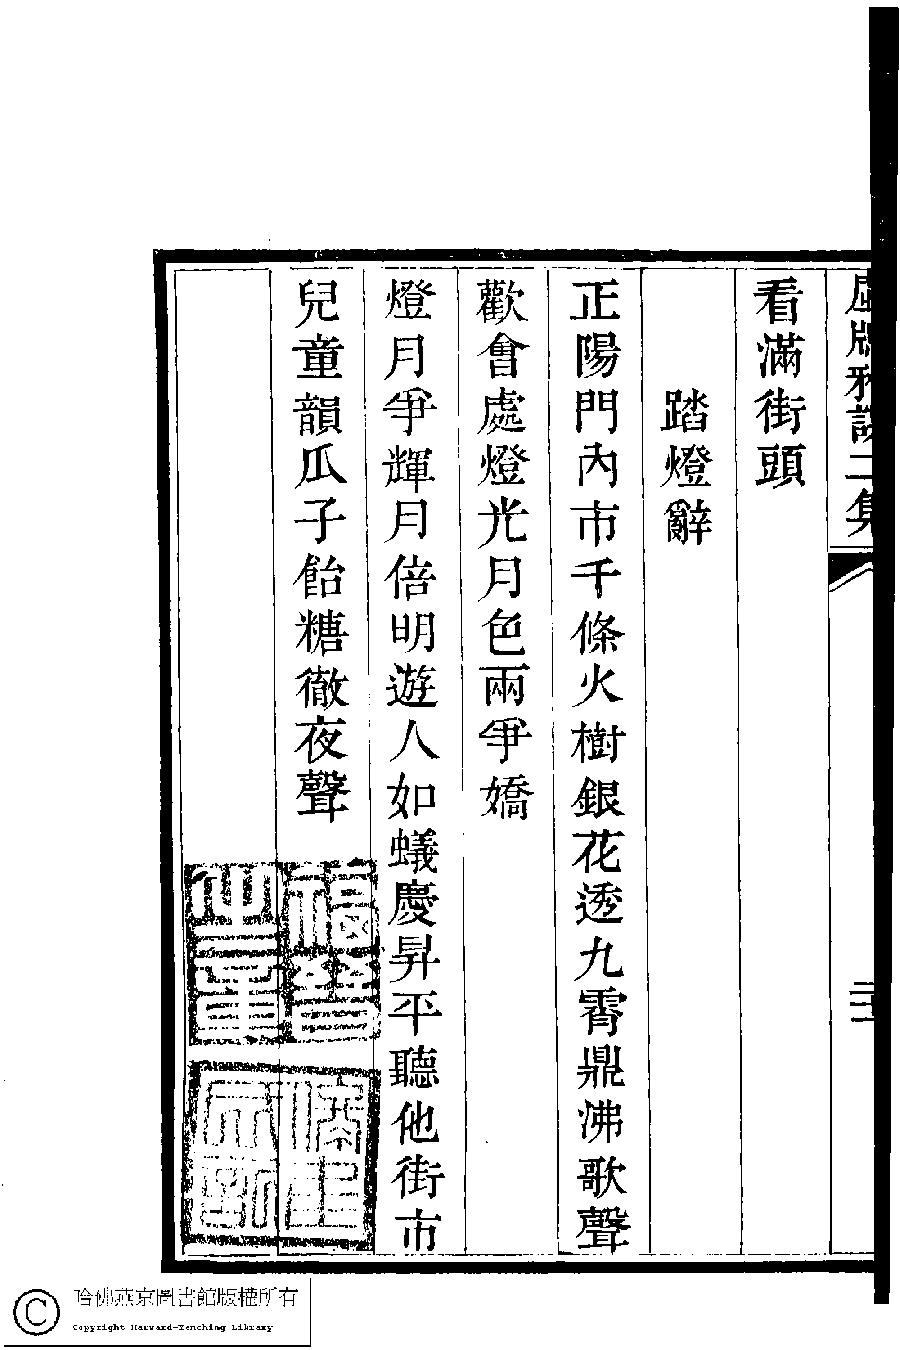 二集
看滿街頭
踏燈辭
正陽門內市千條火樹銀花透九霄鼎沸歌聲
歡會處燈光月色兩爭嬌
燈月爭輝月倍明遊人如蟻慶昇平聽他街市
兒童韻瓜子飴糖徹夜聲
哈佛燕京圖書館版權所有
Copyright Harvard-Yenching Library